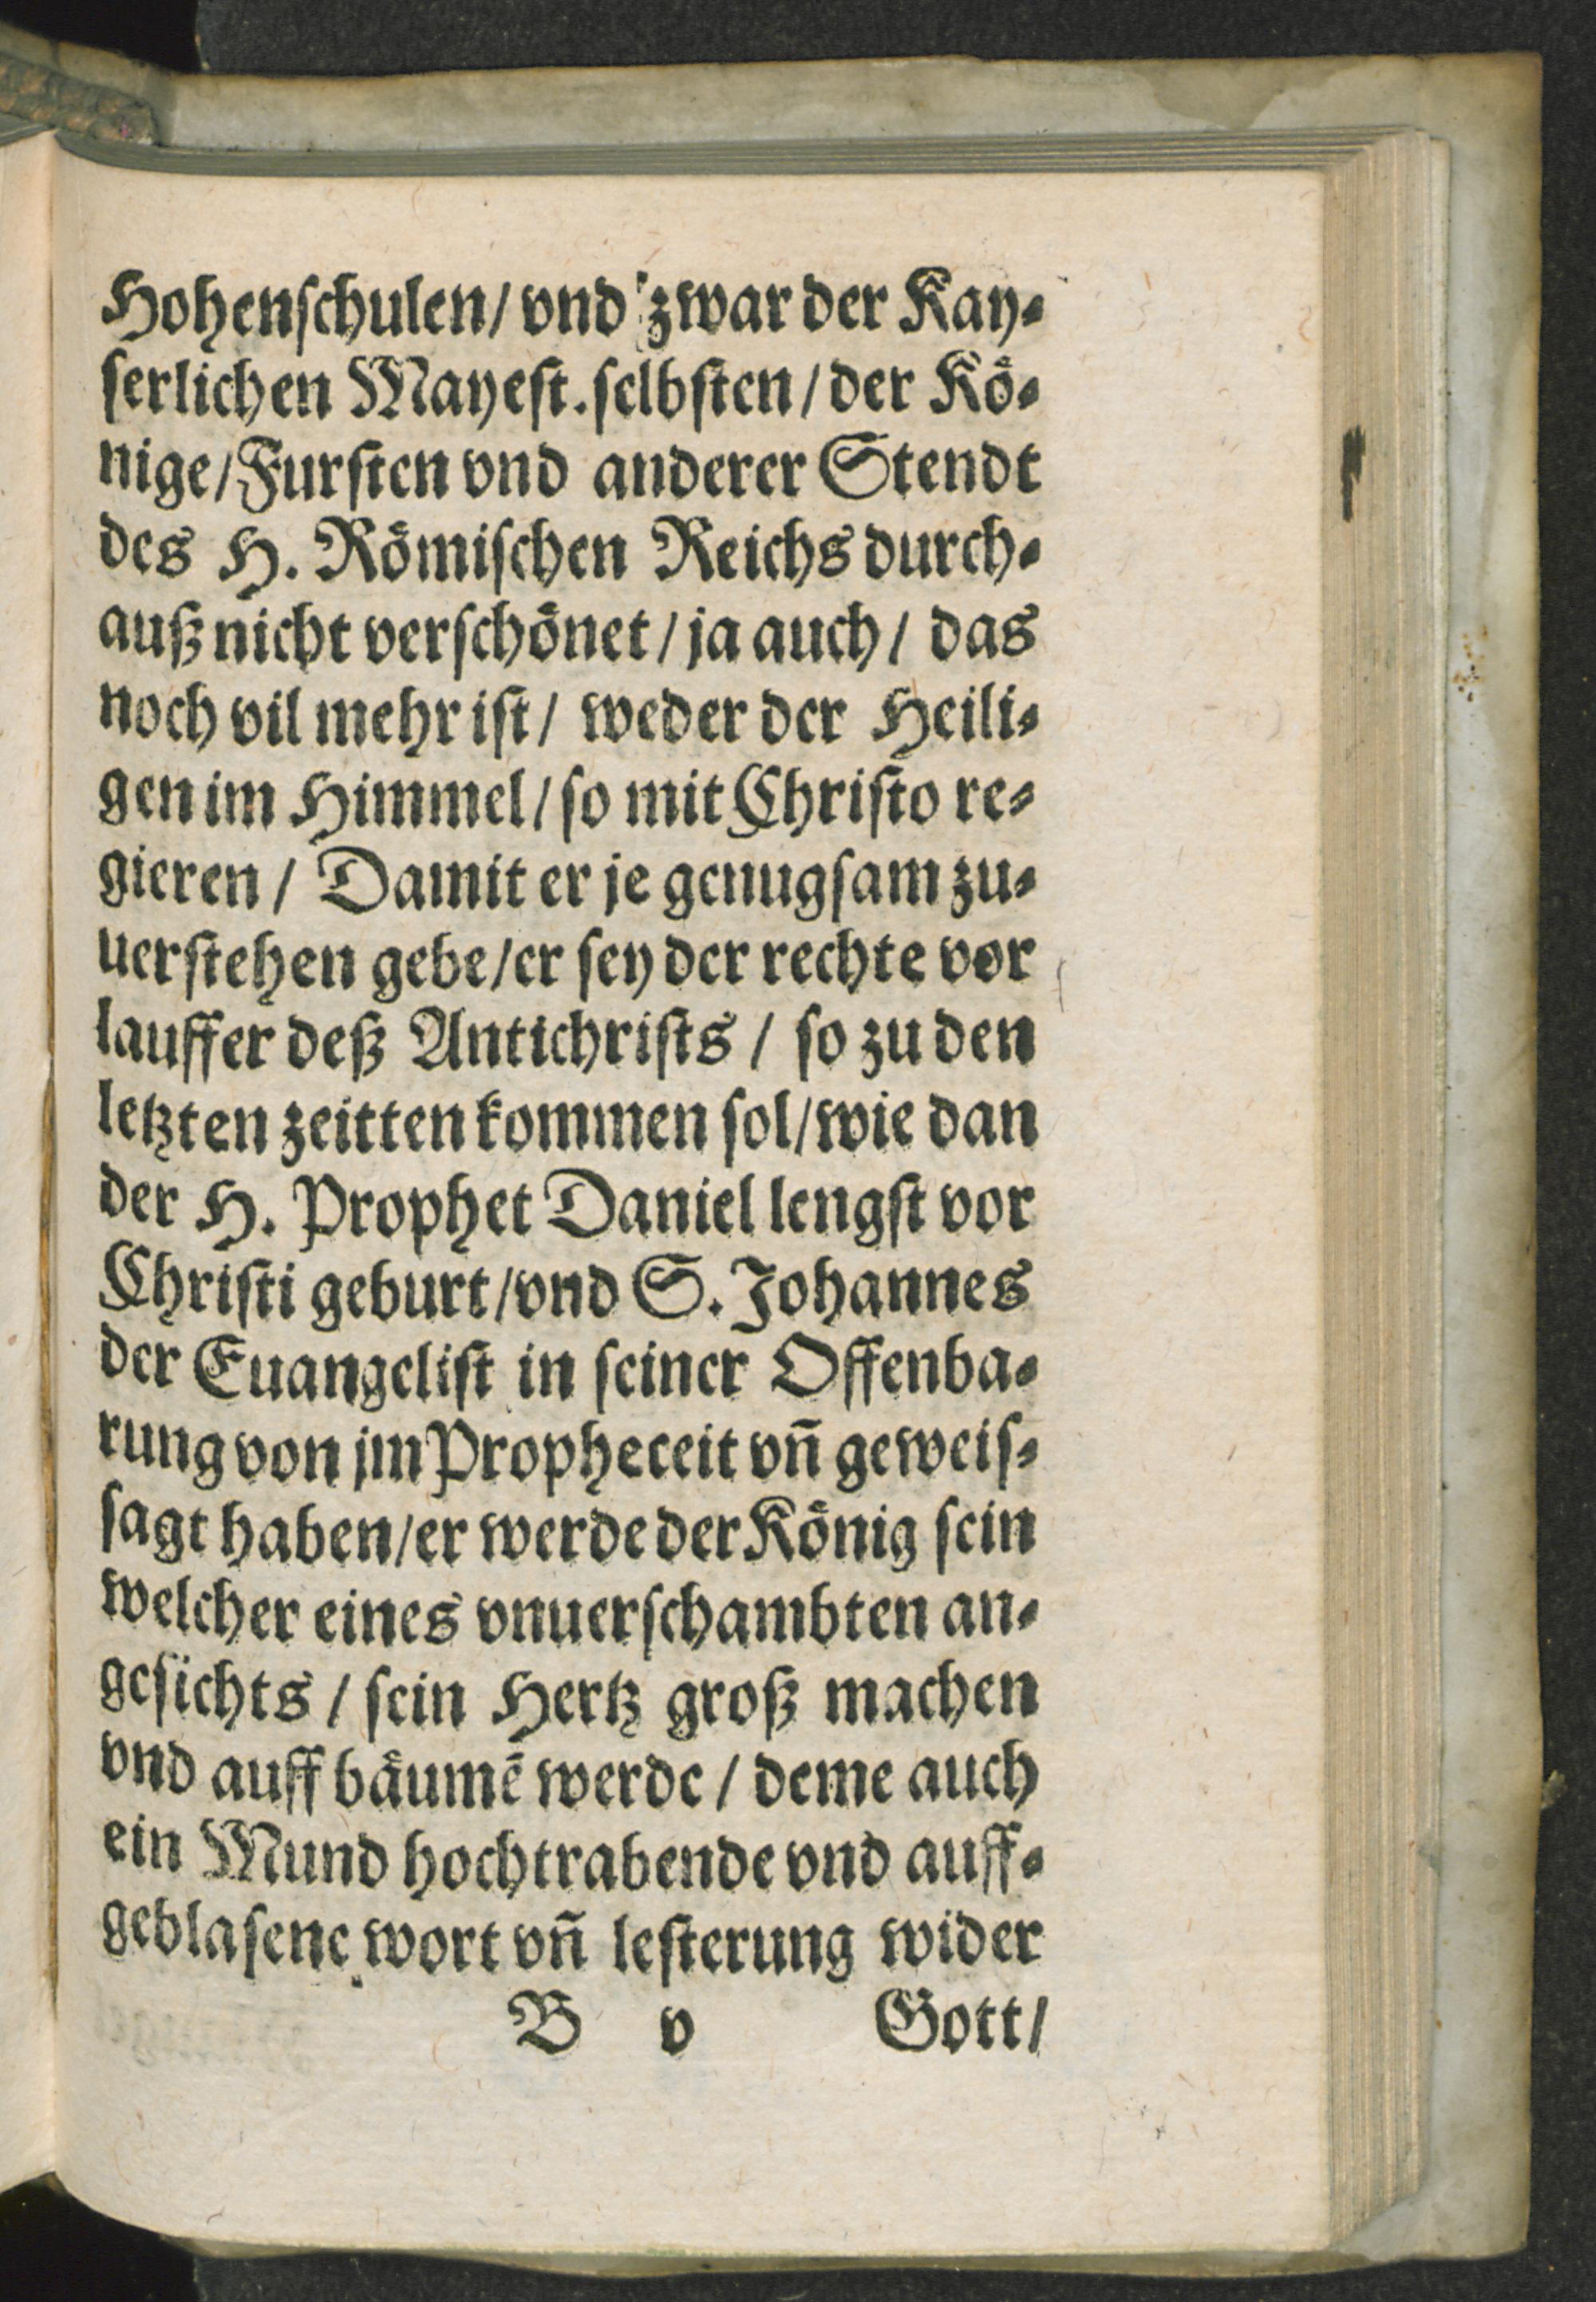 Hohenſchulen/ vnd zwar der Kay⸗
ſerlichen Mayeſt. ſelbſten/ der Kö⸗
nige/ Furſten vnd anderer Stendt
des H. Römiſchen Reichs durch⸗
auß nicht verſchönet/ ja auch/ das
noch vil mehr iſt/ weder der Heili⸗
gen im Himmel/ ſo mit Chriſto re⸗
gieren/ Damit er je genugſam zu⸗
uerſtehen gebe/ er ſey der rechte vor
lauffer deß Antichriſts/ ſo zu den
letzten zeitten kommen ſol/ wie dan
der H. Prophet Daniel lengſt vor
Chriſti geburt/ vnd S. Johannes
der Euangeliſt in ſeiner Offenba⸗
rung von jm Propheceit vñ geweiſ⸗
ſagt haben/ er werde der König ſein
welcher eines vnuerſchambten an⸗
geſichts/ ſein Hertz groß machen
vnd auff bäumē werde/ deme auch
ein Mund hochtrabende vnd auff⸗
geblaſene wort vñ leſterung wider
B v Gott/